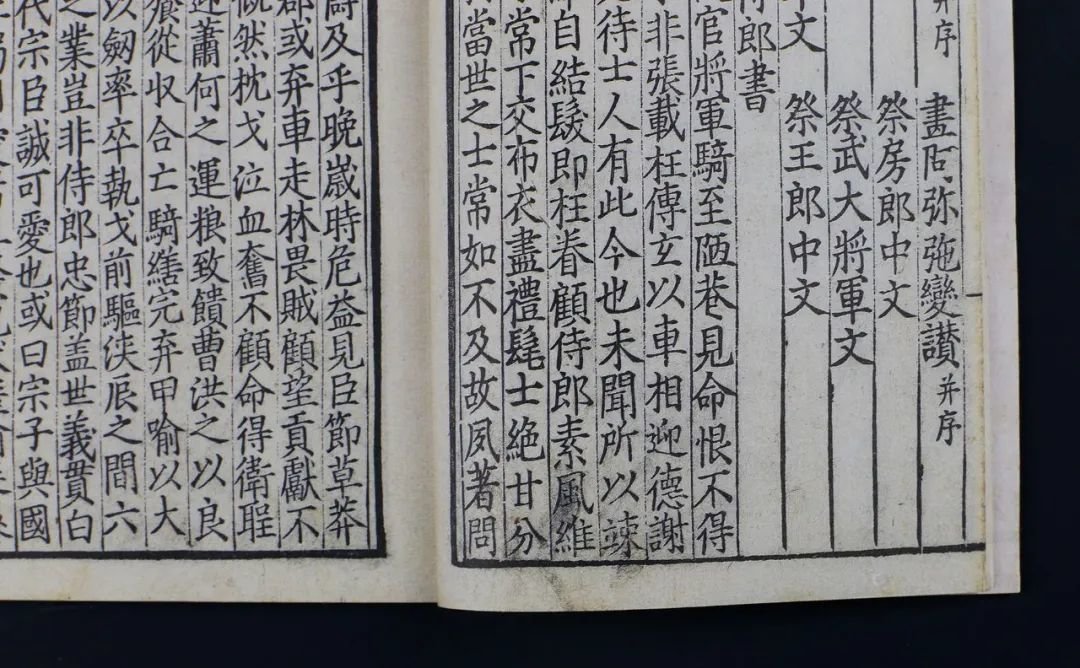 并序　畫阿弥陁變讃并序
祭房郎中文
祭武大將軍文
文　祭王郎中文
郎書
官將軍騎至陋巷見命恨不得
非張載枉傳玄以車相迎德謝
待士人有此今也未聞所以竦
自結髮即枉眷顧侍郎素風維
常下交布衣盡禮髦士絶甘分
當世之士常如不及故夙著問
及乎晚歳時危益見臣節草莽
郡或弃車走林畏賊顧望貢獻不
慨然枕戈泣血奮不顧命得衛
蕭何之運粮致饋曹洪之以良
從収合亡騎繕完弃甲喻以大
以劔率卒執戈前驅浹辰之間六
之業豈非侍郎忠節盖世義貫白
代宗臣誠可愛也或曰宗子與國